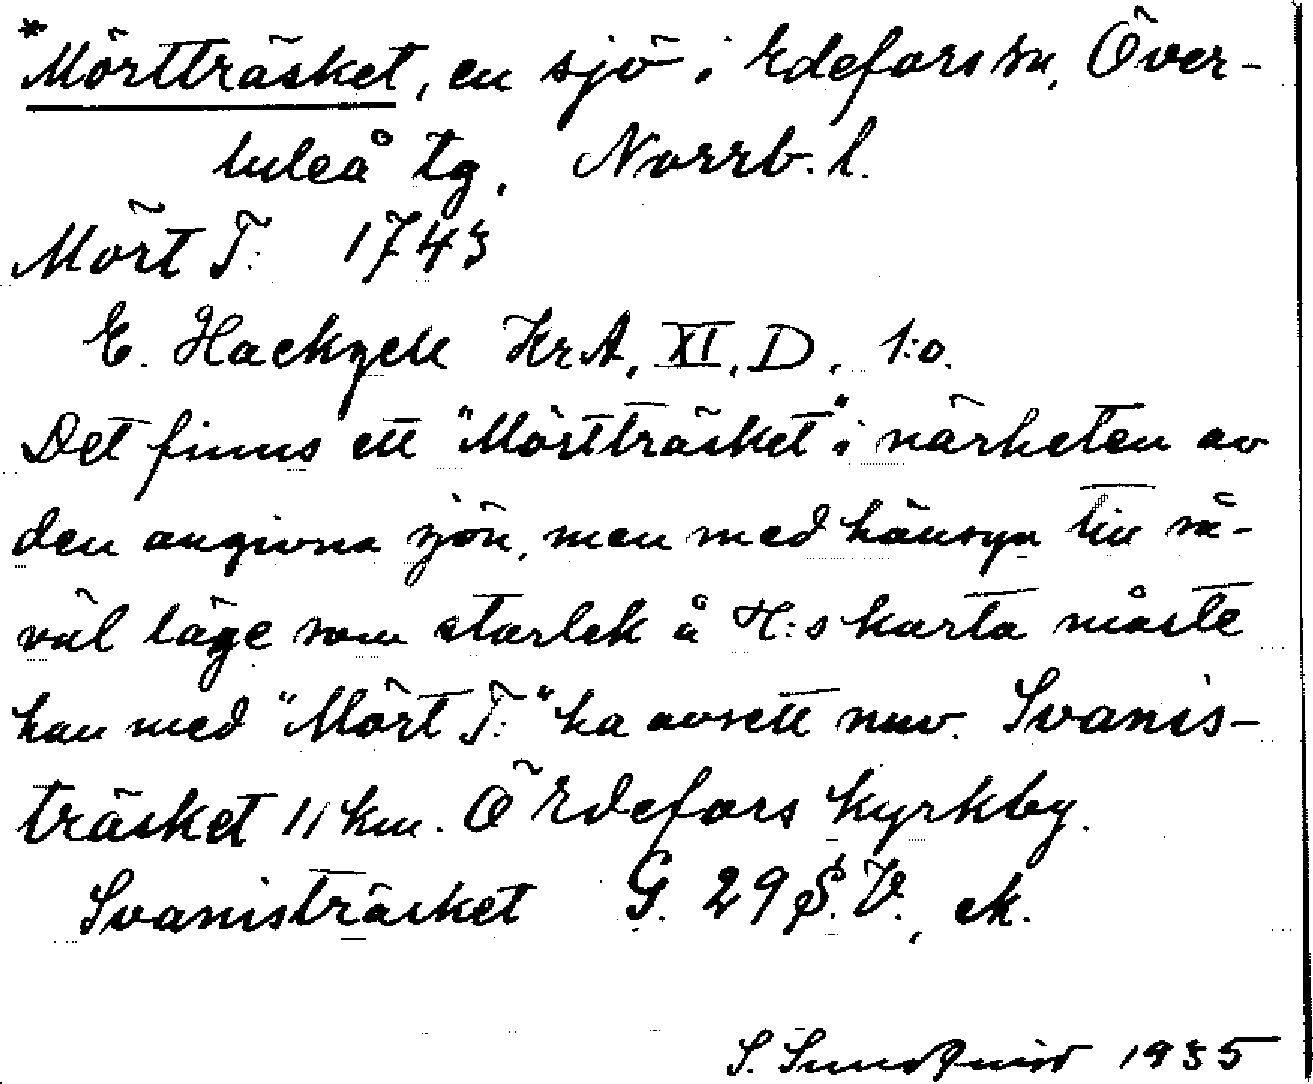 *Mörtträsket, en sjö i Edefors sn, Över-
luleå tg, Norrb. l.
Mört T: 1743
E. Hackzell KrA, XI, D, 1:o.
Det finns ett "Mörtträsket" i närheten av
den angivna sjön, men med hänsyn till så-
väl läge som storlek å H:s karta måste
han med "Mört T:" ha avsett nuv. Svanis-
träsket 11 km. Ö Edefors kyrkby.
Svanisträsket G. 29 S.V., ek.
S. Sundqvist 1935